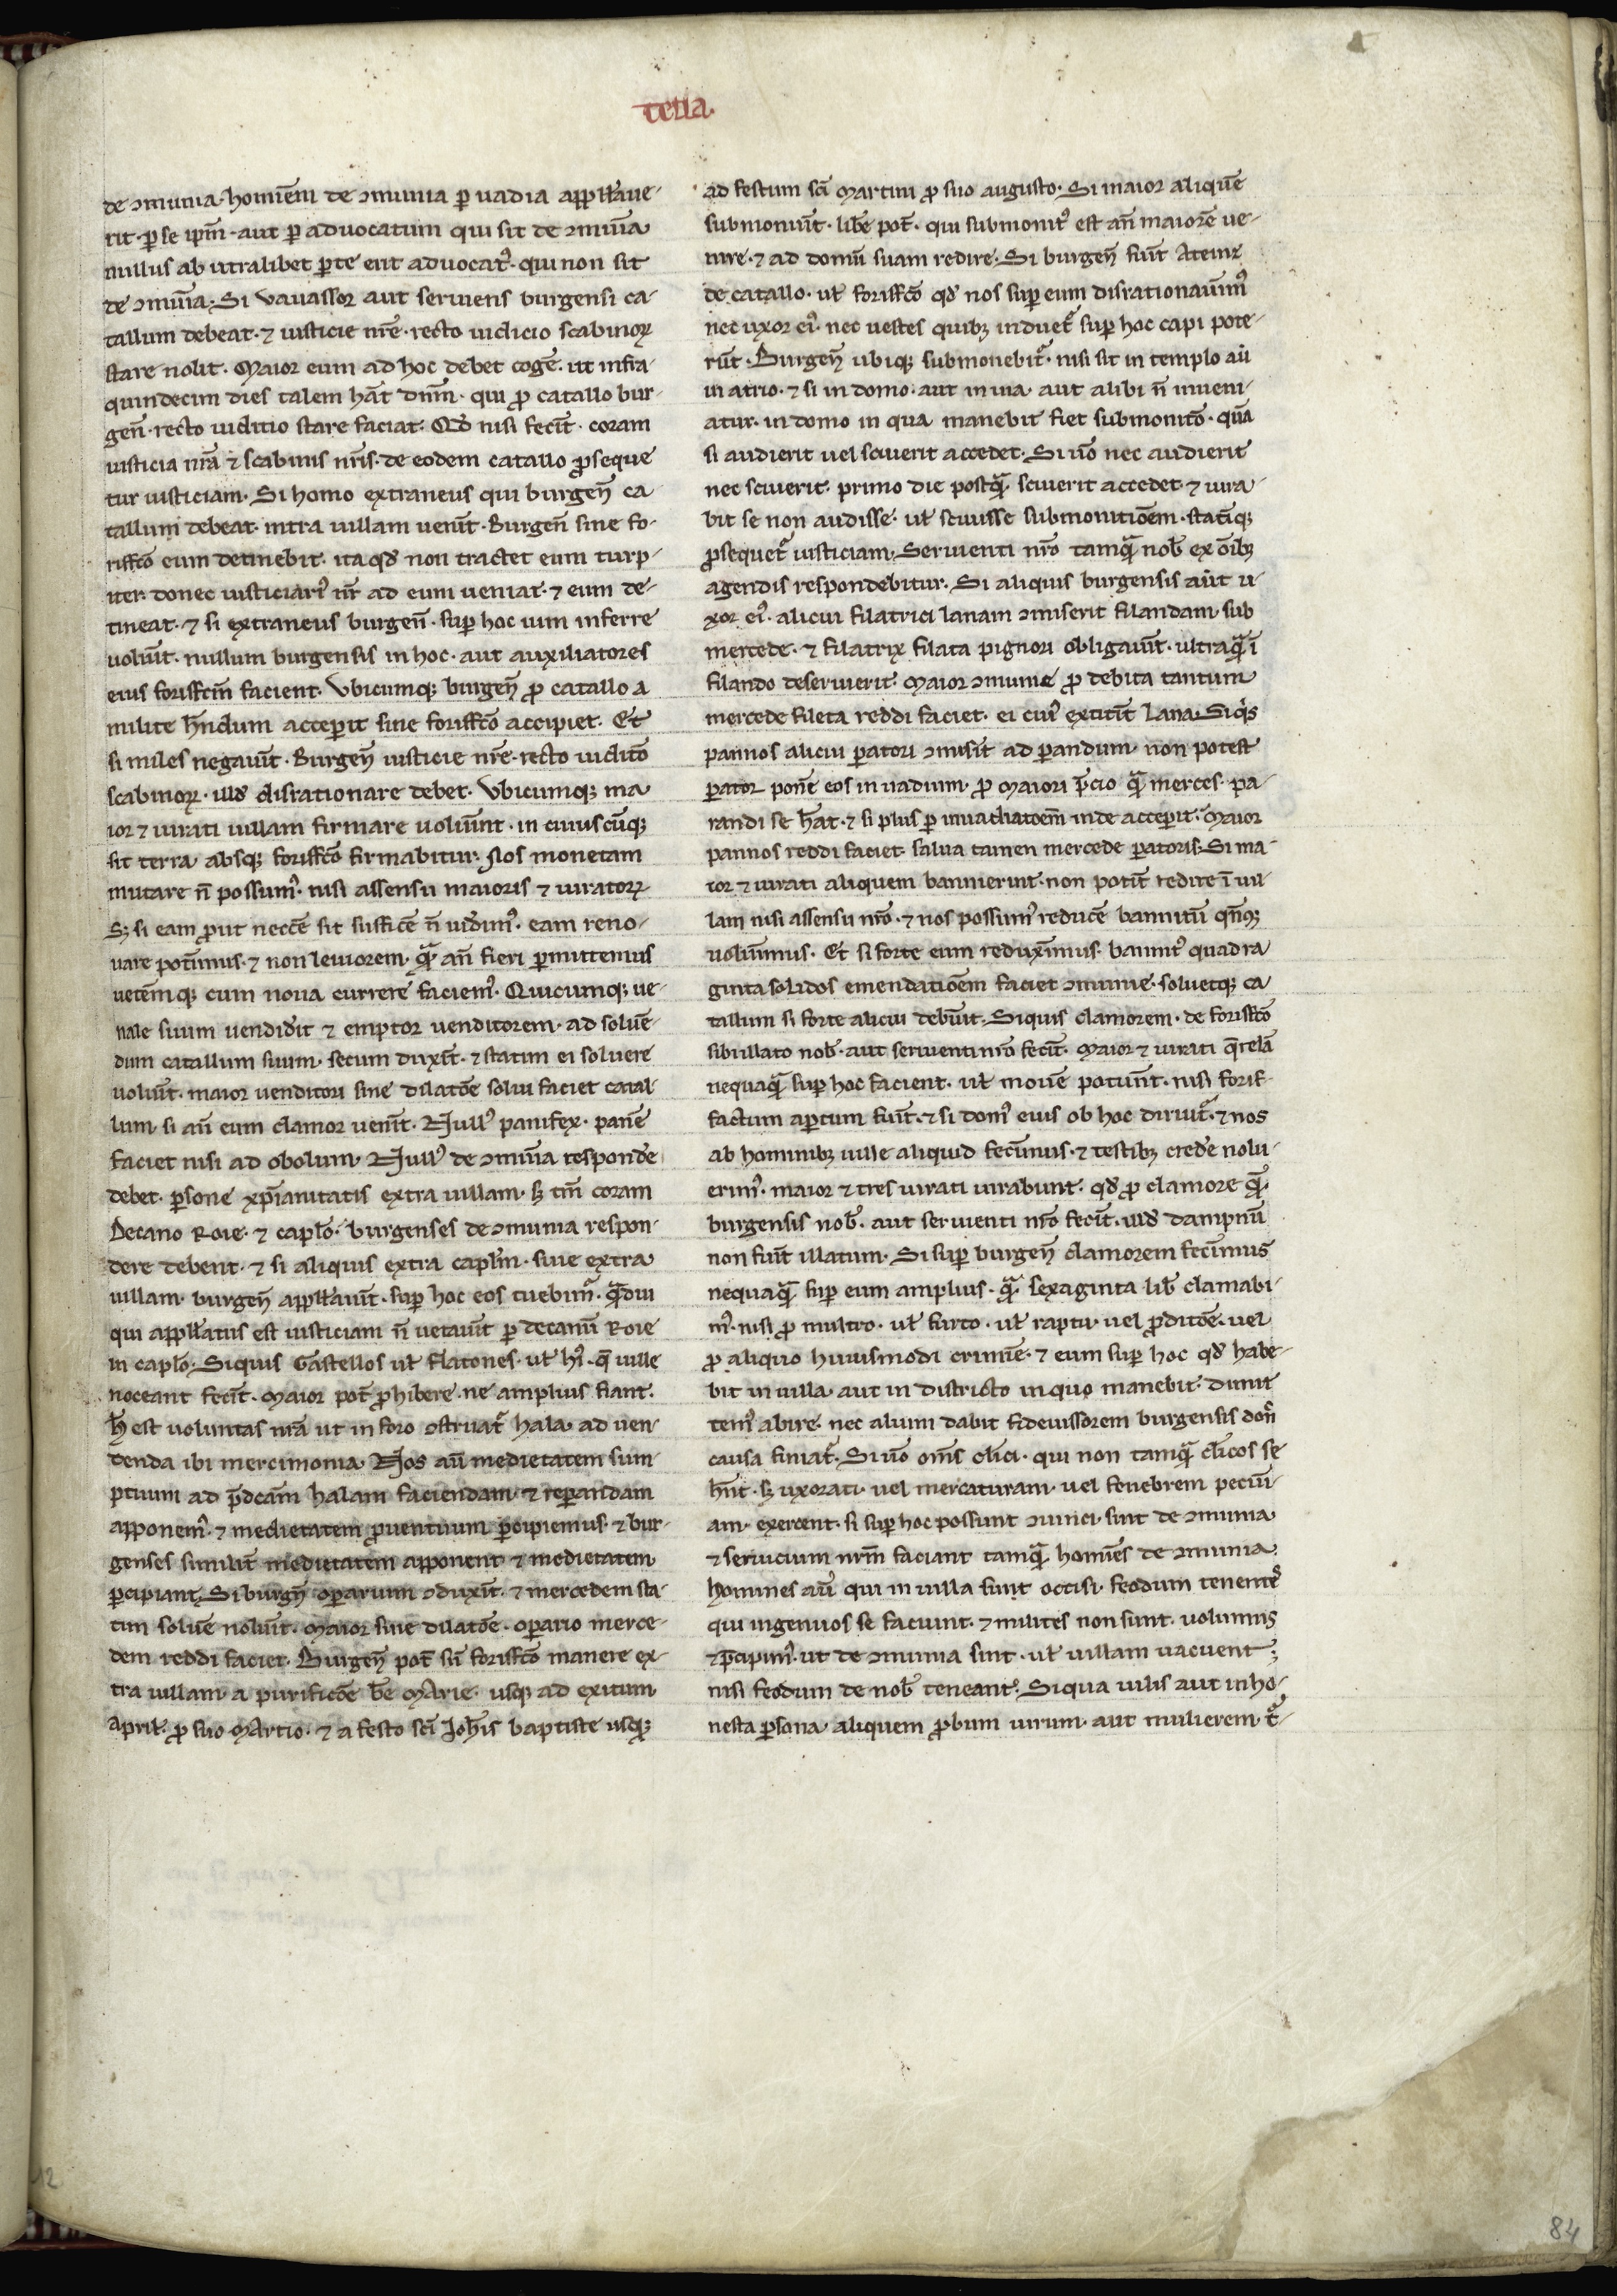 tetia.
de ꝯmunia. homiēm de ꝯmunia ꝑ uadia appell̄aue-
rit. ꝑ se ip̄m. aut ꝑ aduocatum qui sit de ꝯmūia
nullus ab utralibet ꝑte erit aduocat᷒. qui non sit
de ꝯmūia. Si vauassor aut seruiens burgensi ca-
tallum debeat. ⁊ iusticie nr̄e. recto iudicio scabinoꝝ
stare nolit. Maior eum ad hoc debet coge᷒. ut infra
quindecim dies talem hāt dn̄m. qui ꝓ catallo bur-
gen̄. recto iuditio stare faciat. Qd̄ nisi fec̄it. coram
iusticia nr̄a ⁊ scabinis nr̄is. de eodem catallo ꝓseque
tur iusticiam. Si homo extraneus qui burgen̄ ca-
tallum debeat. intra uillam uen̄it. Burgen̄ sine fo-
riffc̄o eum detinebit. ita qd̄ non tractet eum turp-
iter. donec iusticiari᷒ nr̄ ad eum ueniat. ⁊ eum de-
tineat. ⁊ si extraneus burgen̄. suꝑ hoc uim inferre
uolūit. nullum burgensis in hoc. aut auxiliatores
eius foriffctm̄ facient. Vbicumqꝫ burgen̄ ꝓ catallo a
milite hn̄dum acceꝑit sine foriffc̄o accipiet. Et
si miles negauīt. Burgen̄ iusticie nr̄e. recto iudiōto
scabinoꝝ. illd̄ disrationare debet. Vbicumqꝫ ma
ior ⁊ iurati uillam firmare uolūint. in cuiuscūqꝫ
sit terra absqꝫ foriffc̄o firmabitur. Nos monetam
mutare n̄ possum᷒. nisi assensu maioris ⁊ iuratorꝝ
Sꝫ si eam ꝓut necc̄e sit suffice᷒ n̄ uid̄im᷒. eam reno-
uare pot̄imus. ⁊ non leuiorem. qᷓ̄ an̄ fieri ꝑmittemus
uet̄emqꝫ cum noua currere faciem᷒. Quicumqꝫ ue-
nale suum uendid̄it ⁊ emptor uenditorem. ad soluē-
dum catallum suum. secum dux̄it. ⁊ statim ei soluere
uolūit. maior uenditori sine dilatōe solui faciet catal-
lum. si an̄ eum clamor uen̄it. Null᷒ panifex. panē
faciet nisi ad obolum. Null᷒ de ꝯmūia responde᷒
debet. ꝑsone xp̄ianitatis extra uillam. sꝫ tm̄ coram
Decano Roie. ⁊ capl̄o. burgenses de ꝯmunia respon-
dere debent. ⁊ si aliquis extra capl̄m. siue extra
uillam. burgen̄ appell̄auīt. suꝑ hoc eos tuebim᷒. qᷓ̄diu
qui appell̄atus est iusticiam n̄ uetauīt ꝑ decanū Roie
in capl̄o. Siquis Gastellos ul̄ flatones. ul̄ hi᷒. q̄ uille
noceant fec̄it. Maior pot̄ ꝓhibere. ne amplius fiant.
h̄ est uoluntas nr̄a ut in foro ꝯstruatᷓ hala. ad uen-
denda ibi mercimonia. Nos aūt medietatem sum-
ptuum ad p̄dc̄am halam faciendam. ⁊ reꝑandam
apponem᷒. ⁊ medietatem ꝓuentuum ꝑcipiemus. ⁊ bur-
genses similīt medietatem apponent ⁊ medietatem
ꝑcipiant. Si burgn̄ oꝑarium ꝯdux̄it. ⁊ mercedem sta-
tim solue᷒ nolūit. Maior sine dilatōe. oꝑario merce-
dem reddi faciet. Burgen̄ pot̄ sn̄ foriffc̄o manere ex-
tra uillam. a purificōe be᷒ Marie. usqꝫ ad exitum
April᷒. ꝓ suo Martio. ⁊ a festo sc̄i Joh̄is baptiste usqꝫ
ad festum sc̄i Martini ꝓ suo augusto. Si maior aliquē
submonūit. lib̄e pot̄. qui submonit᷒ est an̄ maiorē ue-
nire. ⁊ ad domū suam redire. Si burgen̄ fūit Ateinz
de catallo. ul̄ foriffc̄o qd̄ nos suꝑ eum disrationauīm᷒
nec uxor ei᷒. nec uestes quibꝫ induetᷓ suꝑ hoc capi pote-
rūt. Burgen̄ ubiqꝫ submonebitᷓ. nisi sit in templo aūt
in atrio. ⁊ si in domo. aut in uia. aut alibi n̄ inueni-
atur. in domo in qua manebit fiet submonitō. quā
si audierit uel sciuerit accedet. Si ūo nec audierit
nec sciuerit. primo die postqᷓ̄ sciuerit accedet. ⁊ iura-
bit se non audisse. ul̄ sciuisse submonitiōem. statīqꝫ
ꝓsequetᷓ iusticiam. Seruienti nr̄o tamqᷓ̄ nob̄ ex ōibꝫ
agendis respondebitur. Si aliquis burgensis aūt u-
xor ei᷒. alicui filatrici lanam ꝯmiserit filandam sub
mercede. ⁊ filatrix filata pignori obligauīt. ultraqᷓ̄ ī
filando deseruierit. Maior ꝯmunie ꝓ debita tantum
mercede fileta reddi faciet. ei cui᷒ extit̄it lana. Siqͥs
pannos alicui ꝑatori ꝯmis̄it ad ꝑandum. non potest
ꝑator pone᷒ eos in uadium. ꝓ maiori p̄cio qᷓ̄ merces. pa-
randi se h̄at. ⁊ si plus ꝑ inuadiatoēm inde acceꝑit. Maior
pannos reddi faciet. salua tamen mercede ꝑatoris. Si ma-
ior ⁊ iurati aliquem bannierint. non pot̄it redire ī uil-
lam nisi assensu nr̄o. ⁊ nos possum᷒ reduce᷒ bannitū qn̄qꝫ
uolūimus. Et si forte eum redux̄imus. bannit᷒ quadra
ginta solidos emendatiōem faciet ꝯmunie. soluetqꝫ ca
tallum si forte alicui debūit. Siquis clamorem. de foriffc̄o
sibi illato nob̄. aut seruienti nr̄o fec̄it. Maior ⁊ iurati q̄relā
nequaqᷓ̄ suꝑ hoc facient. ul̄ moue᷒ pot̄unt. nisi forif-
factum aꝑtum fūit. ⁊ si dom᷒ eius ob hoc diruitᷓ. ⁊ nos
ab hominibꝫ uille aliquid fec̄imus. ⁊ testibꝫ crede᷒ nolu-
erim᷒. maior ⁊ tres iurati iurabunt. qd̄ ꝓ clamore qᷓ̄.
burgensis nob̄. aut seruienti nr̄o fec̄it. illd̄ dampnū
non fūit illatum. Si suꝑ burgen̄ clamorem fec̄imus
nequaqᷓ̄ suꝑ eum amplius. qᷓ̄ sexaginta lib̄ clamabi-
m᷒. nisi ꝓ multro. ul̄ furto. ul̄ raptu. uel ꝓditōe. uel
ꝓ aliquo huiusmodi crimīe. ⁊ eum suꝑ hoc qd̄ habe-
bit in uilla. aut in districto in quo manebit. dimit
tem᷒ abire. nec alium dabit fideiussorem burgensis don̄
causa finiatᷓ. Si ūo om̄s cl̄ici. qui non tamqᷓ̄ cl̄icos se
hn̄t. sꝫ uxorati. uel mercaturam. uel fenebrem pecūi-
am. exercent. si suꝑ hoc possunt ꝯuinci. sint de ꝯmunia.
⁊ seruicium nr̄m faciant tamqᷓ̄ homīes de ꝯmunia.
Homines aūt qui in uilla sunt occisi. feodum tenente᷒s
qui ingenuos se faciunt. ⁊ milites non sunt. uolumus
⁊ p̄cipim᷒. ut de ꝯmunia sint. ul̄ uillam uacuent;
nisi feodum de nob̄ teneant. Siqua uilis aut inho-
nesta ꝑsona. aliquem ꝓbum uirum. aut mulierem. tᷓ-
84